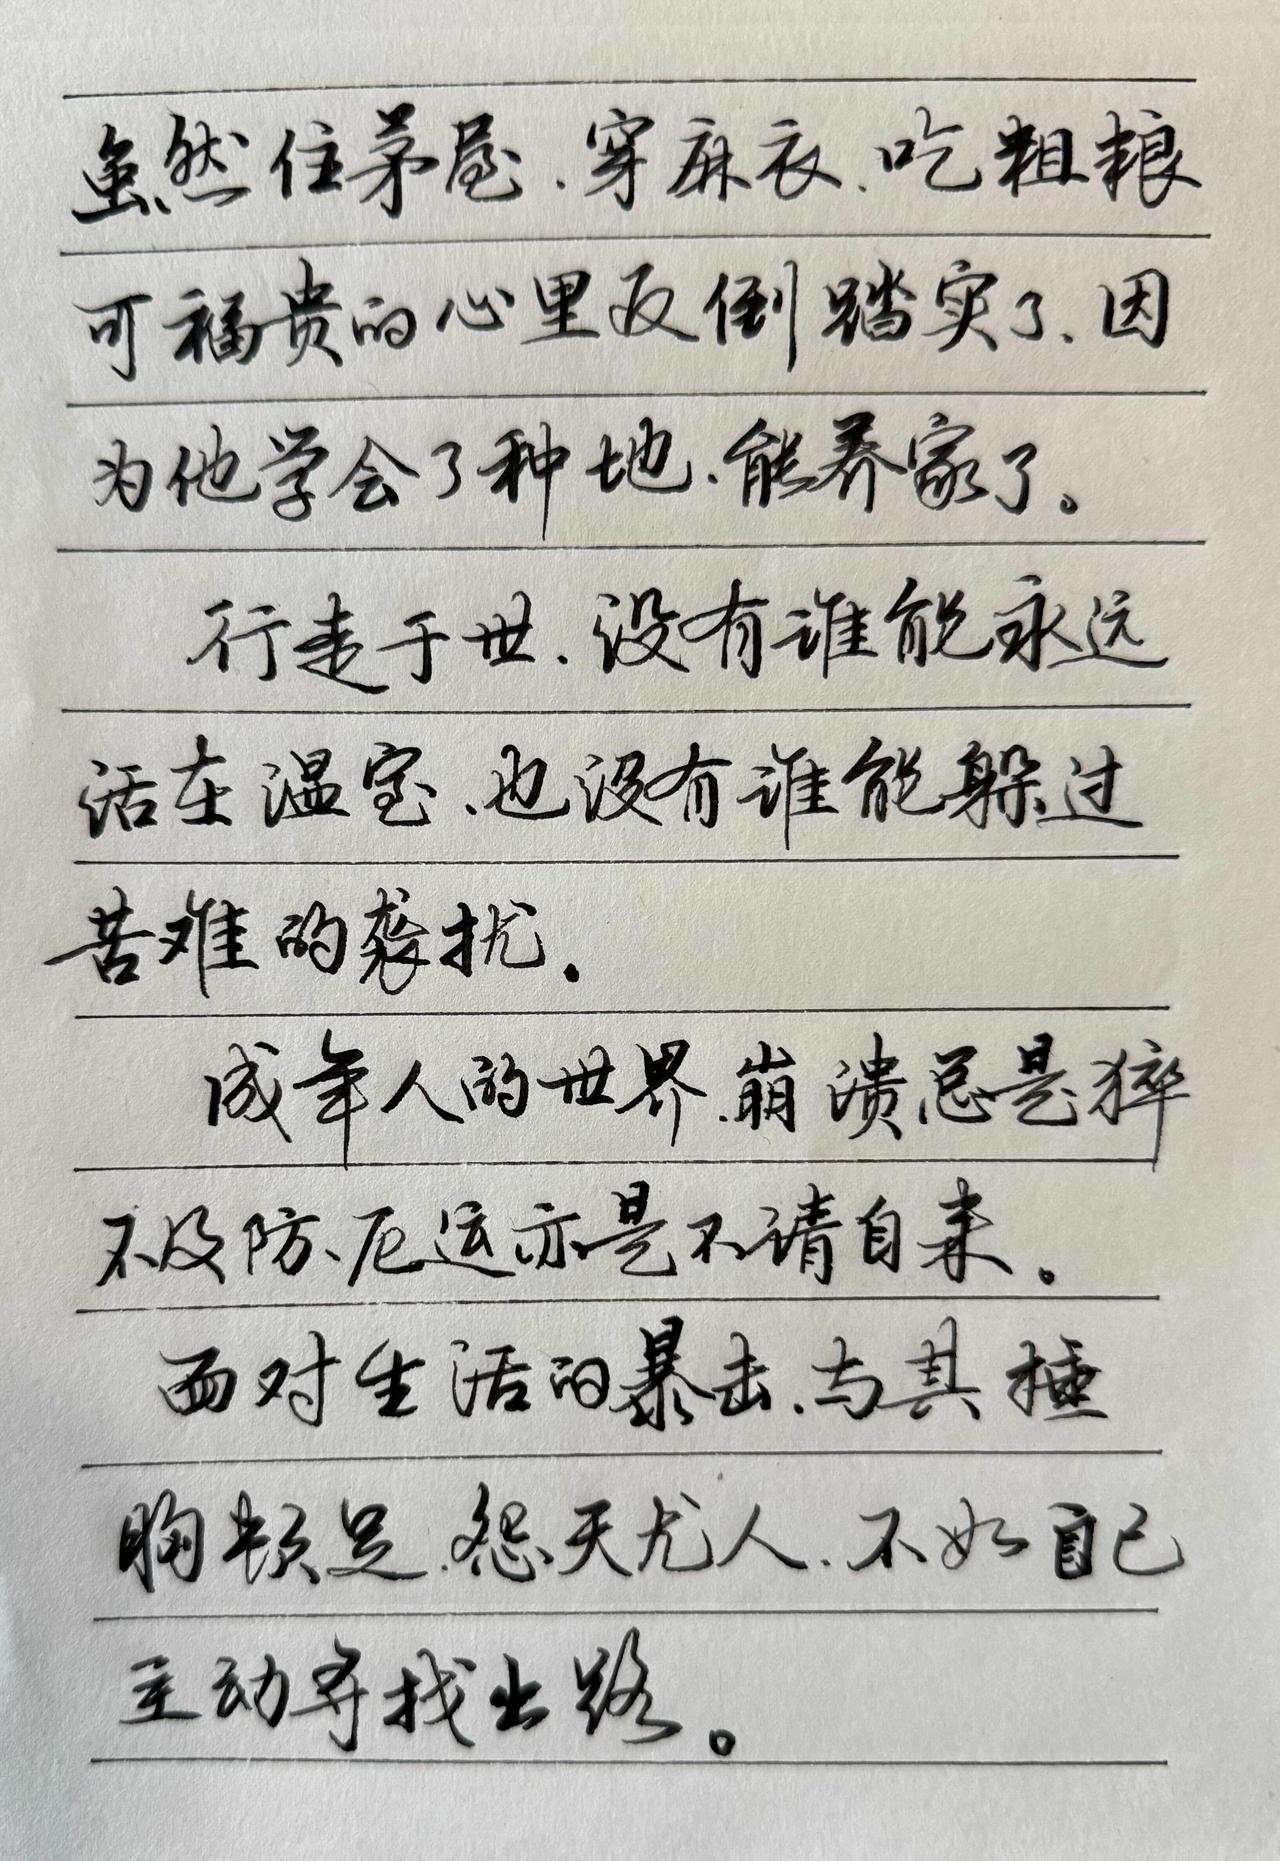 虽然住茅屋、穿麻衣、吃粗粮
可福贵的心里反倒踏实了、因
为他学会了种地、能养家了。
行走于世、没有谁能永远
活在温室、也没有谁能躲过
苦难的袭扰.
成年人的世界、崩溃总是猝
不及防、厄运亦是不请自来.
面对生活的暴击、与其捶
胸顿足、怨天尤人、不如自己
主动寻找出路。